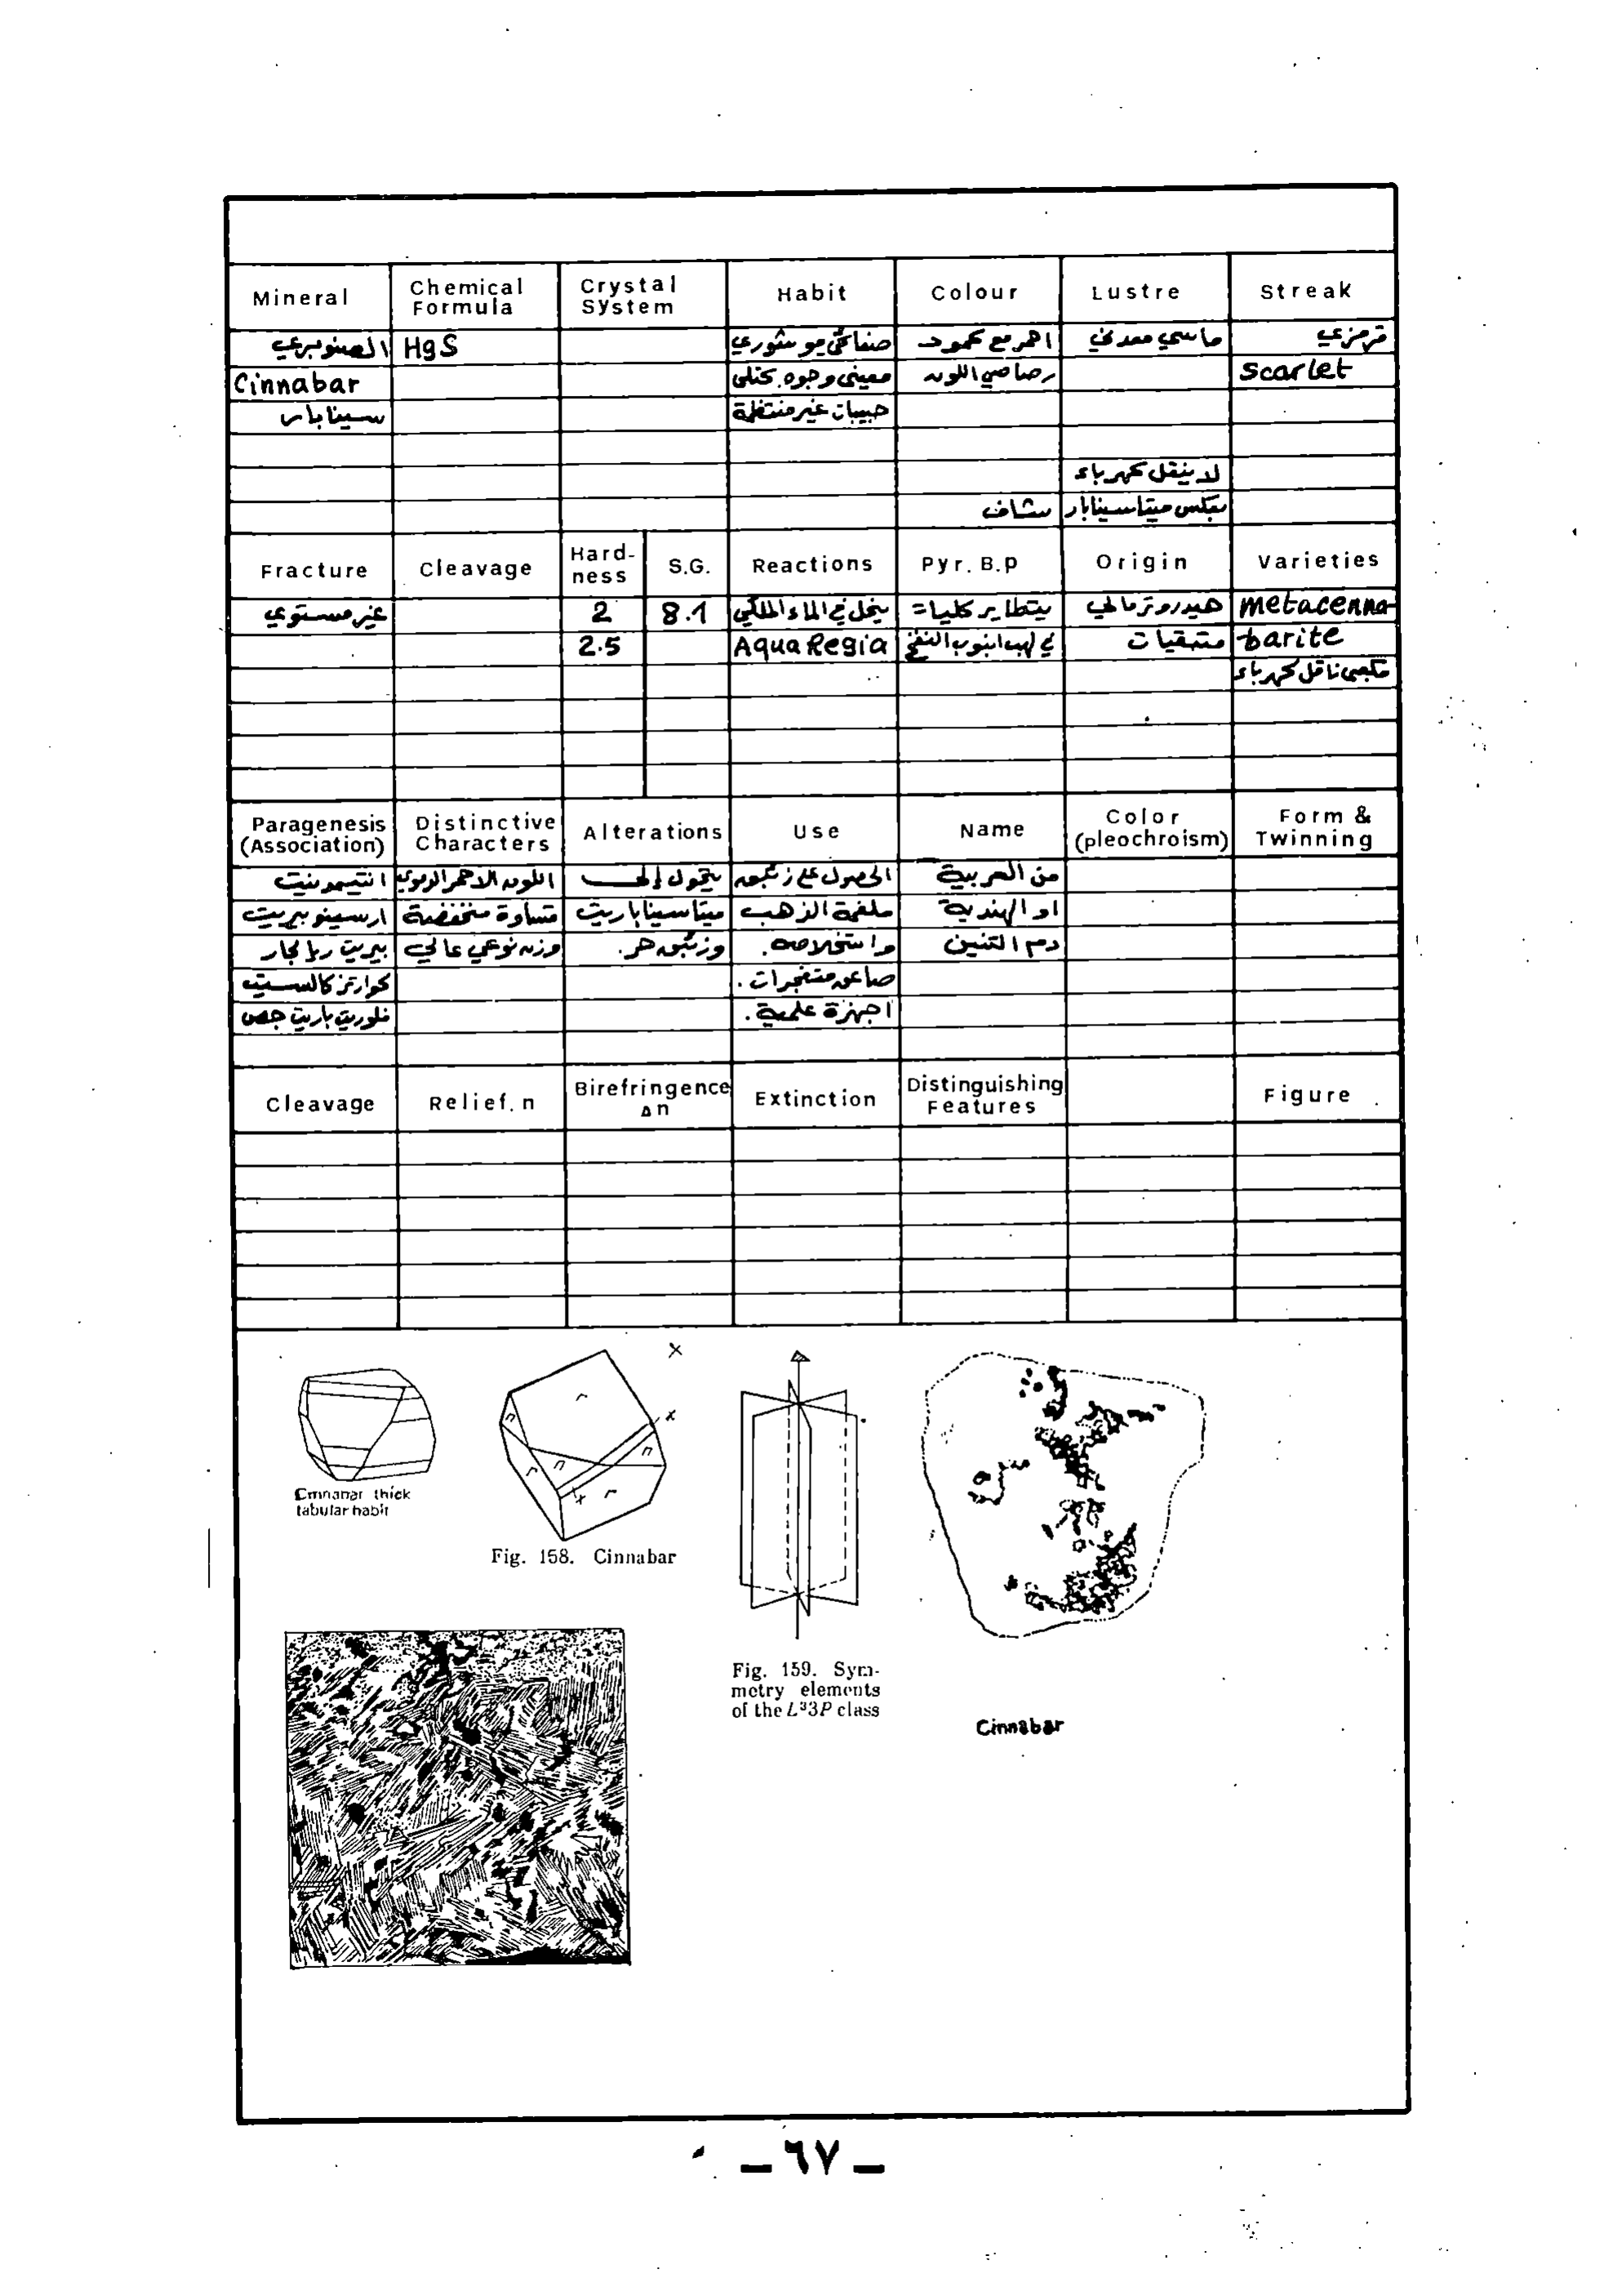 Mineral
Chemical Formula
Crystal System
Habit
Colour
Lustre
Streak
HgS
احمر مع كمود
ماسي معدني
قرمزي
Cinnabar
معيني وجوه. كتلي
رصاصي اللون
scarlet
سينابار
حبيبات غير منتظمة
لا ينقل كهرباء
شفاف
بعكس ميتاسينابار
Fracture
Cleavage
Hard-ness
S.G.
Reactions
Pyr. B.p
Origin
Varieties
غير مستوي
2
8.1
ينحل في الماء الملكي
يتطاير كليا=
هيدروترمالي
metacenna-
2.5
Aqua Regia
في لهب انبوب النفخ
متبقيات
barite
مكعبي ناقل كهرباء
Paragenesis (Association)
Distinctive Characters
Alterations
Use
Name
Color (pleochroism)
Form & Twinning
انتيمونيت
اللون الاحمر الدموي
يتحول إلى
الحصول على زئبق
من العربية
ارسينوبيريت
قساوة منخفضة
ميتاسيناباريت
ملغمة الذهب
او الهندية
بيريت ريالجار
وزن نوعي عالي
وزئبق حر.
واستخلاصه.
دم التنين
كوارتز كالسيت
صاعق متفجرات.
فلوريت باريت جص
اجهزة علمية.
Cleavage
Relief. n
Birefringence Δn
Extinction
Distinguishing Features
Figure
Cinnabar thick
tabular habit
Fig. 158. Cinnabar
Fig. 159. Sym-
metry elements
of the L³3P class
Cinnabar
– ٦٧ –